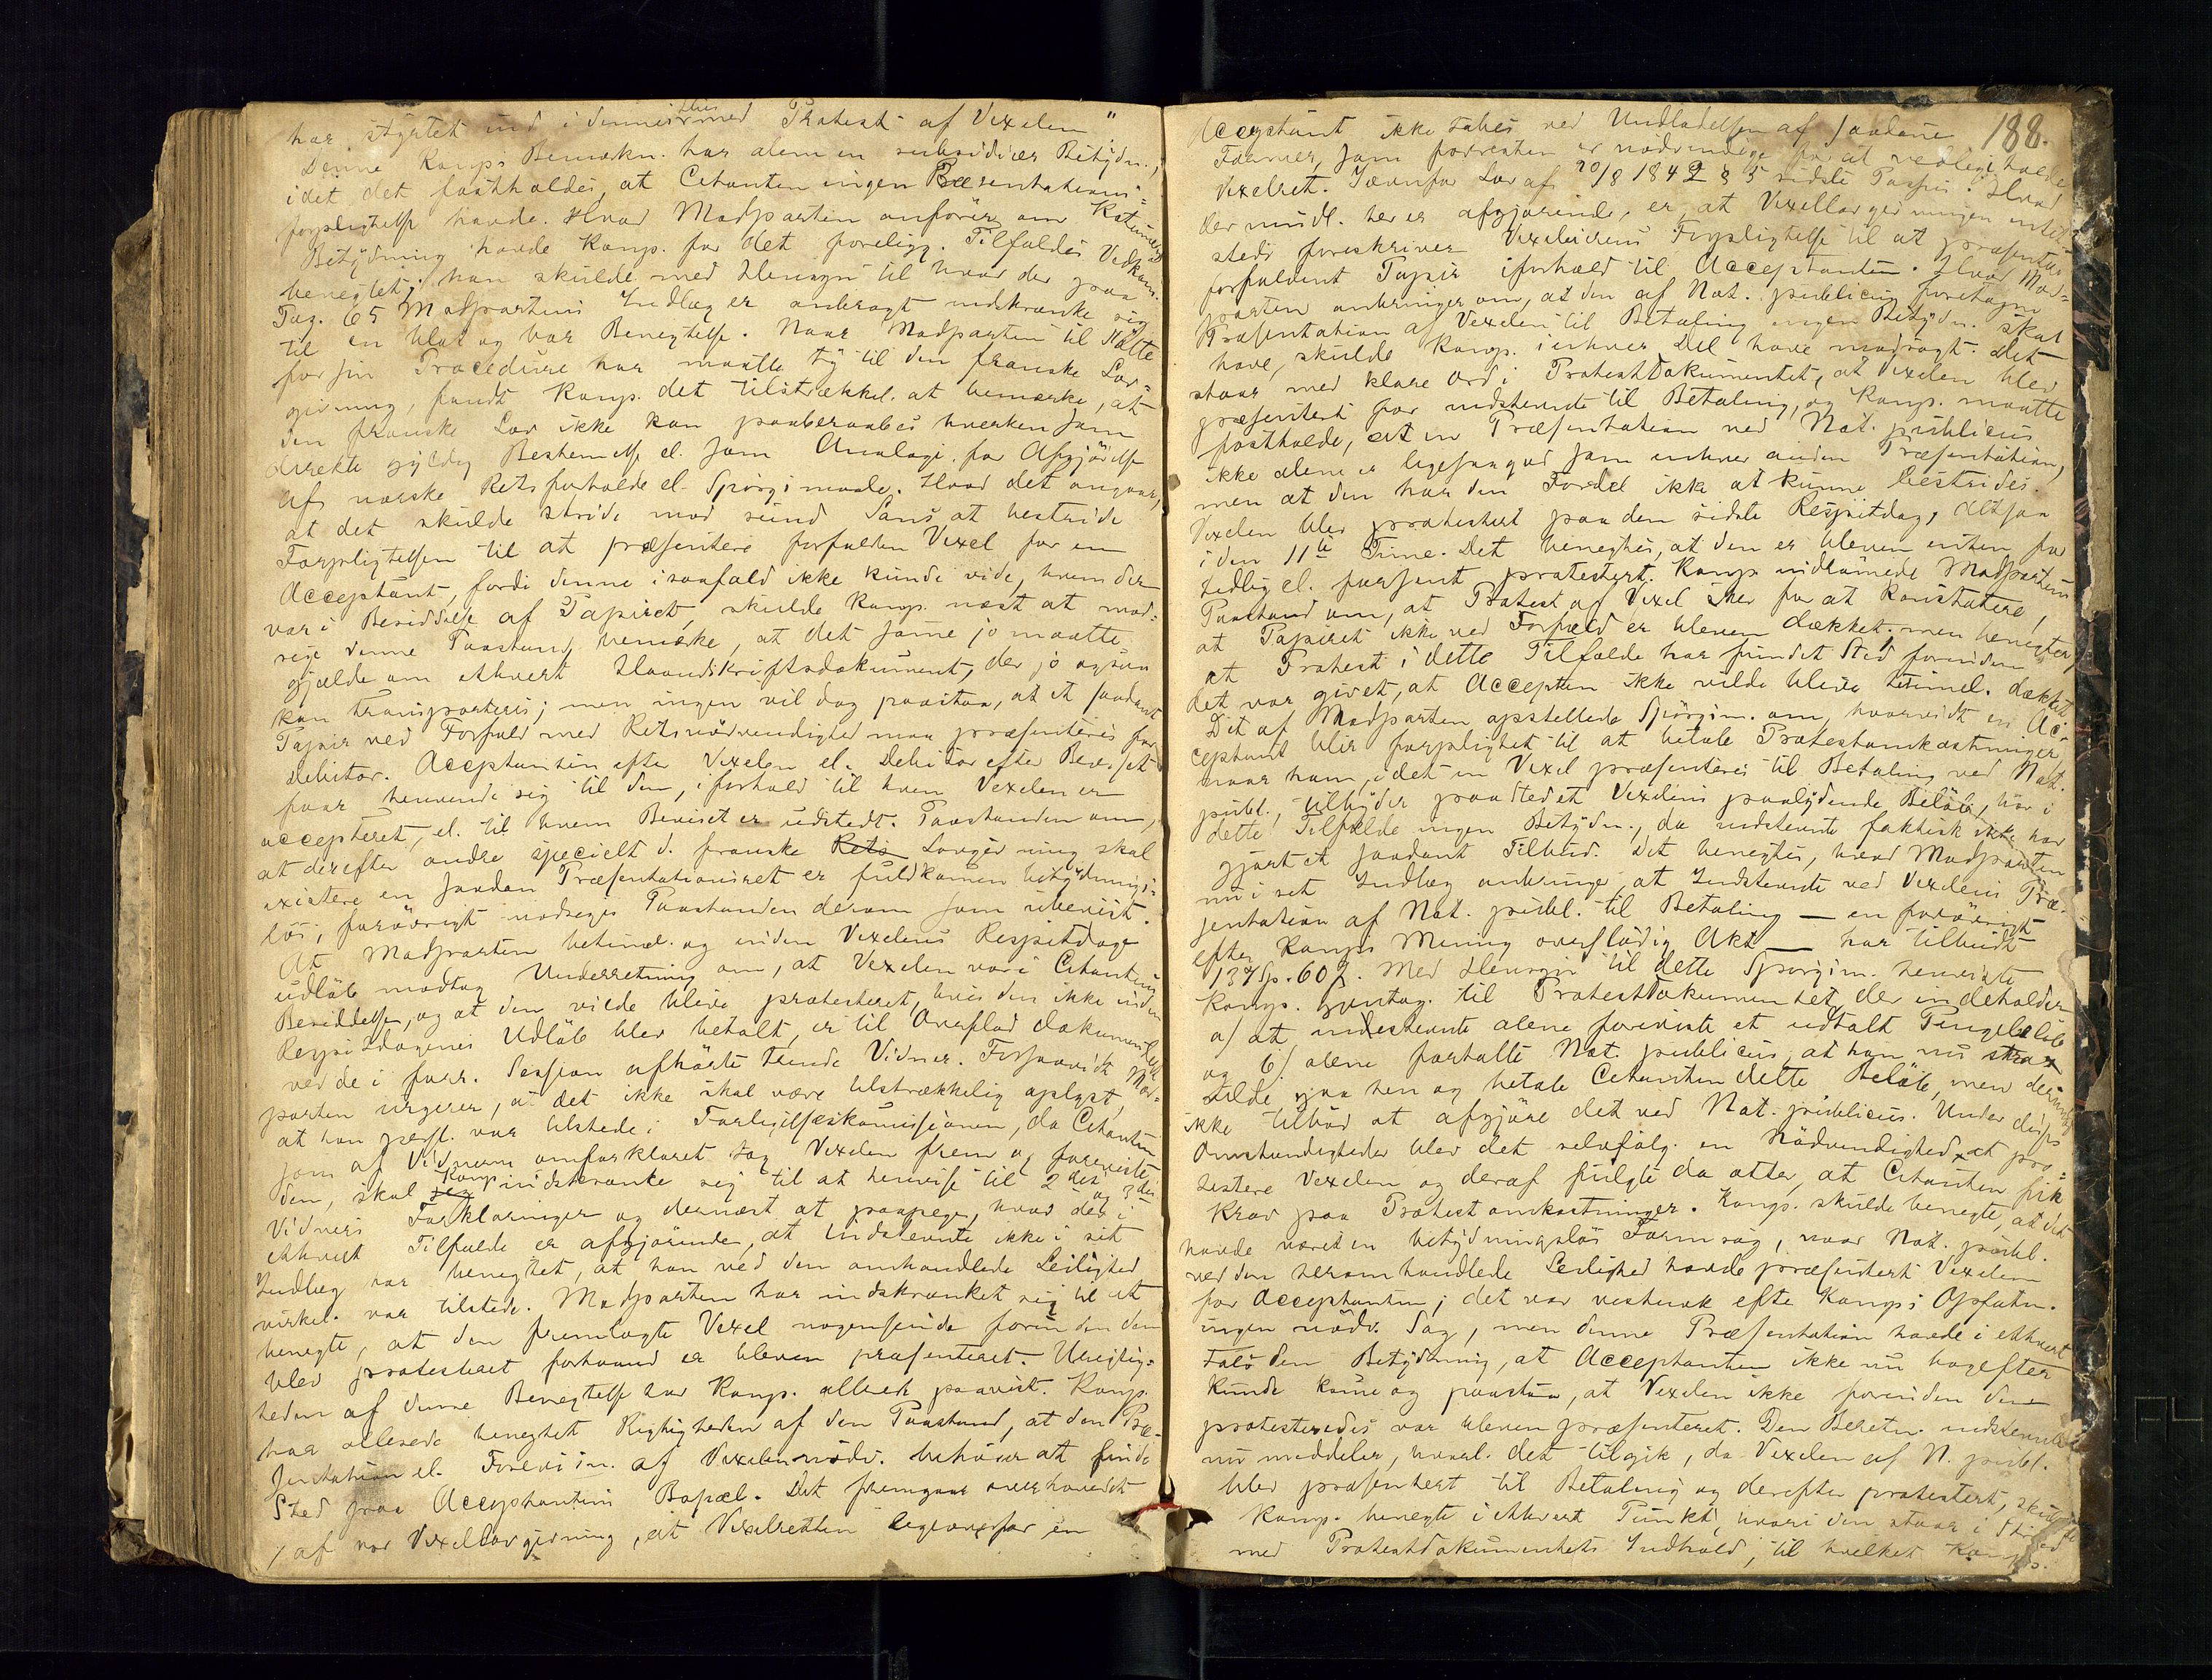 har styrtet ind i dennes Hus med Protest af Vexelen"
Denne Komps Bemærkn. har alene en subsidiær Betydn.,
idet det fastholdes, at Citanten ingen Præsentations-
forpligtelse havde. Hvad Modparten anfører om
Betydning havde Komp. for det foreligg. Tilfældes Vedkom.
benegtet; han skulde med Hensyn til hvad der paa
Pag. 65 Modpartens Indlæg er anbragt indskrænke sig
til en blot og bar Benegtelse. Naar Modparten til Støtte
for sin Procedure har maatte ty til den franske Lov-
givning, fandt Komp. det tilstrækkel. at bemærke, at
den franske Lov ikke kan paaberaabes hverken som
direkte gyldig Bestemmelse el. som Analogi for Afgjørelse
af norske Retsforholde el. Spørgsmaale. Hvad det angaar,
at det skulde stride mod sund Sans, at bestride
Forpligtelsen til at præsentere forfalden Vexel for en
Acceptant, fordi denne isaafald ikke kunde vide, hvem der
var i Besiddelse af Papiret, skulde Komp. næst at mod-
sige denne Paastand, bemærke, at det samme jo maatte
gjælde om ethvert Haandskriftsdokument, der jo ogsaa
kan transporteres; men ingen vil dog paastaa, at et saadant
Papir ved Forfald med Retsnødvendighed maa præsenteres for
Debitor. Acceptanten efter Vexelen el. Debitor efter Beviset
faar henvende sig til den, i forhold til hvem Vexelen er
accepteret, el. til hvem Beviset er udstedt. Paastanden om,
at derefter andre specielt d. franske Rets Lovgivning skal
existere en saadan Præsentationsret er fuldkommen betydnings-
løs; forøvrigt modsiges Paastanden derom som ubevist.
At Modparten betimel. og inden Vexelens Respitdage
udløb modtog Underretning om, at Vexelen var i Citantens
Besiddelse, og at den vilde blive protesteret, hvis den ikke inden
Respitdagenes Udløb blev betalt, er til Overflod dokumenteret
ved de i forr. Session afhørte tvende Vidner. Forsaavidt Mod-
parten urgerer, at det ikke skal være tilstrækkelig oplyst,
at han persl. var tilstede i Forligelseskommissionen, da Citanten
som af Vidnerne omforklaret tog Vexelen frem og foreviste
den, skal Komp. indskrænke sig til at henvise til 2det og 3die
Vidners Forklaringer og dernæst at paapege, hvad der i
ethvert Tilfælde er afgjørende, at Indstevnte ikke i sit
Indlæg har benegtet, at han ved den omhandlede Leilighed
virkel. var tilstede. Modparten har indskrænket sig til at
benegte, at den fremlagte Vexel nogensinde forinden den
blev protesteret forhaand er bleven præsenteret. Urigtig-
heden af denne Benegtelse har Komp. allerede paavist. Komp.
har allerede benegtet Rigtigheden af den Paastand, at den Præ-
sentation el. Forevisn. af Vexelen nødv. behøver at finde
Sted paa Acceptantens Bopæl. Det fremgaar overhovedet
af vor Vexellovgivning, at Vexelretten ligeoverfor en
188.
Acceptant ikke tabes ved Undladelsen af saadanne
Former, som forresten er nødvendige for at vedligeholde
Vexelret. Jævnfør Lov af 20/8 1842 § 5 sidste Passus. Hvad
dernæst. her er afgjørende, er, at Vexellovgivningen intet-
steds foreskriver Vexeleierens Forpligtelse til at præsentere
forfaldent Papir iforhold til Acceptanten. Hvad Mod-
parten anbringer om, at den af Not. publicus foretagne
Præsentation af Vexelen til Betaling ingen Betydn. skal
have, skulde Komp. i enhver Del have modsagt. Det
staar med klare Ord i Protestdokumentet, at Vexelen blev
præsenteret for indstevnte til Betaling, og Komp. maatte
fastholde, at en Præsentation ved Not. publicus
ikke alene er ligesaagod som enhver anden Præsentation,
men at den har den Fordel ikke at kunne bestrides.
Vexelen blev protesteret paa den sidste Respitdag, altsaa
i den 11te Time. Det benegtes, at den er bleven enten for
tidlig el. forsent protesteret. Komp. indrømmede Modpartens
Paastand om, at Protest og Vexel sker for at konstatere,
at Papiret ikke ved Forfald er bleven dækket; men benegter,
at Protest i dette Tilfælde har fundet Sted forinden
det var givet, at Accepten ikke vilde blive betimel. dækket.
Det af Modparten opstillede Spørgsm. om, hvorvidt en Ac-
ceptant blir forpligtet til at betale Protestomkostninger
naar ham, idet en Vexel præsenteres til Betaling ved Not.
publ., tilbyder paastedet Vexelens paalydende Beløb, har i
dette Tilfælde ingen Betydn., da indstevnte faktisk ikke har
gjort et saadant Tilbud. Det benegtes, hvad Modparten
nu i sit Indlæg anbringer, at Indstevnte ved Vexelens Præ-
sentation af Not. publ. til Betaling — en forøvrigt
efter Komps Mening overflødig Akt — har tilbudt
137 Sp. 60 β. Med Hensyn til dette Spørgsm. henviste
Komp. gjentag. til Protestdokumentet, der indeholder
a) at indstevnte alene foreviste et udtalt Pengebeløb
og b) alene fortalte Not. publicus, at han nu strax
vilde gaa hen og betale Citanten dette Beløb, men derimod
ikke tilbød at afgjøre det ved Not. publicus. Under disse
Omstændigheder blev det selvfølg. en Nødvendighed at pro-
testere Vexelen og deraf fulgte da atter, at Citanten fik
Krav paa Protestomkostninger. Komp. skulde benegte, at det
havde været en betydningsløs Formsag, naar Not. publ.
ved den heromhandlede Leilighed havde præsentert Vexelen
for Acceptanten; det var vistnok efter Komps Opfatn.
ingen nødv. Sag, men denne Præsentation havde i ethvert
Fald den Betydning, at Acceptanten ikke nu bagefter
kunde komme og paastaa, at Vexelen ikke forinden den
protesteredes var bleven præsenteret. Den Beretn. indstevnte
nu meddeler, hvorl. det tilgik, da Vexelen af N. publ.
blev præsentert til Betaling og derefter protestert, skulde
Komp. benegte i ethvert Punkt, hvori den staar i Strid
med Protestdokumentets Indhold, til hvilket Komp.